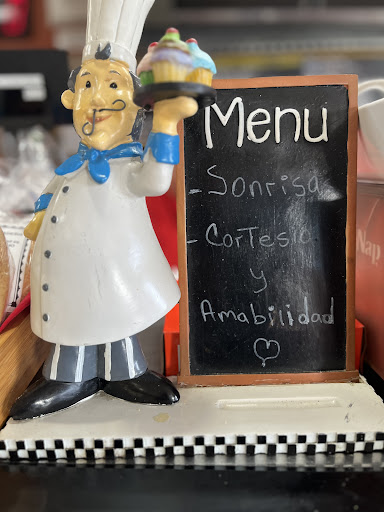 Menu
- Sonrisa
- Cortesia
y
Amabilidad
Nap